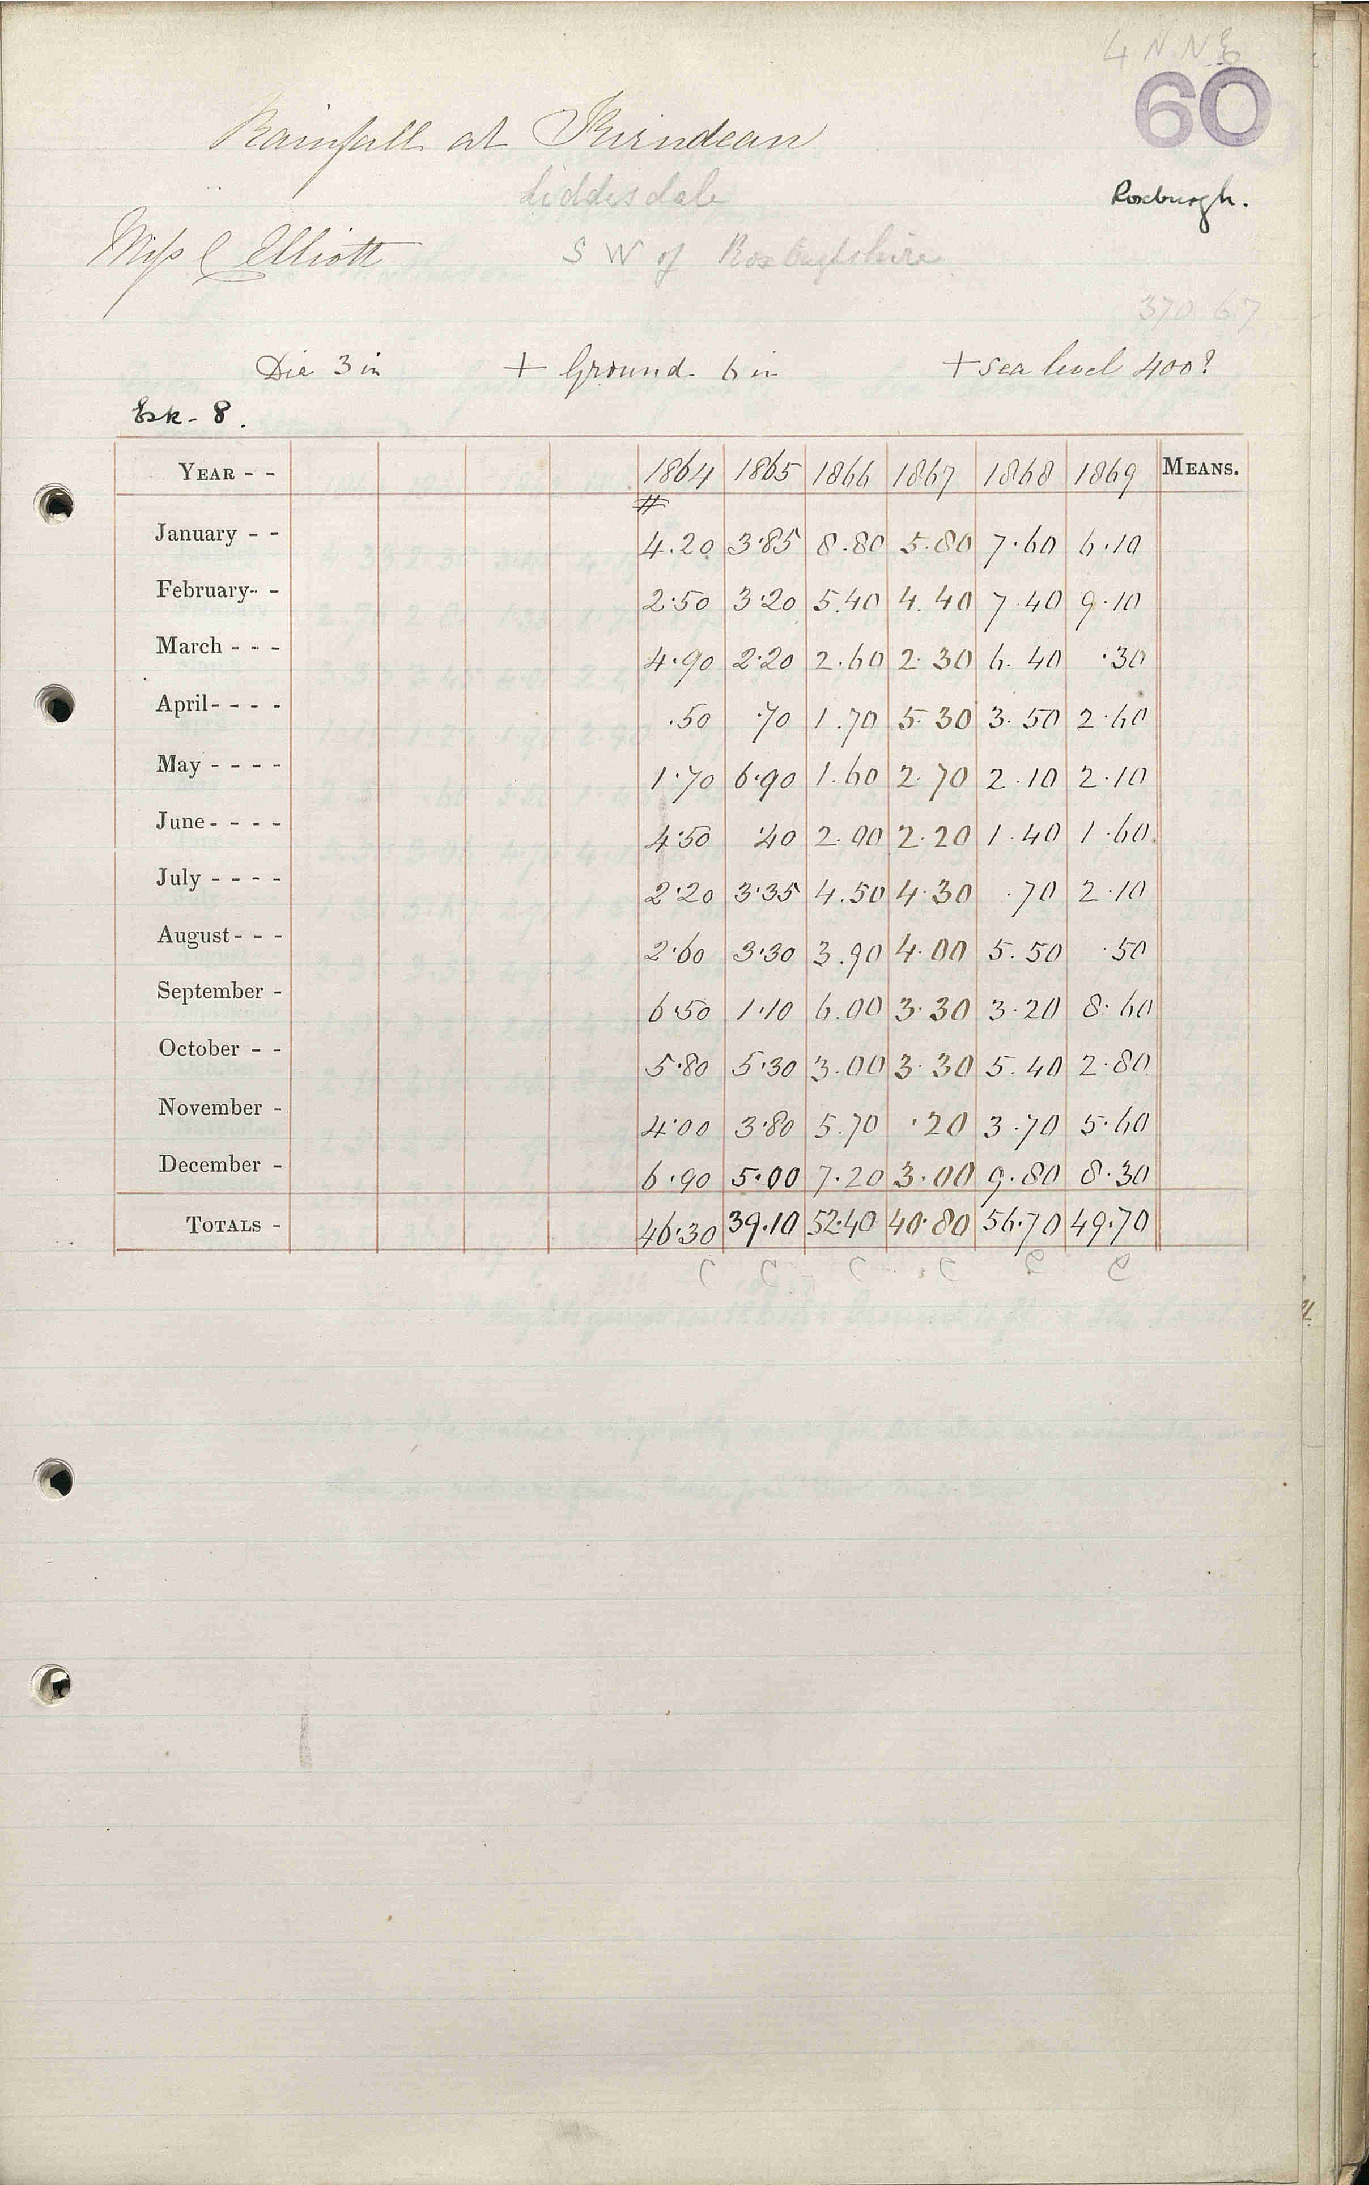 4 N N E
60
Rainfall at Kirndean
Liddesdale
Roxburgh.
Miss C Elliott
S W of Roxburghshire
370 617
Die 3 in + Ground 6 in + sea level 400?
Esk - 8.
YEAR - - 1864 1865 1866 1867 1868 1869 MEANS.
#
January - - 4.20 3.85 8.80 5.80 7.60 6.10
February - - 2.50 3.20 5.40 4.40 7.40 9.10
March - - - 4.90 2.20 2.60 2.30 6.40 .30
April - - - - .50 .70 1.70 5.30 3.50 2.60
May - - - - 1.70 6.90 1.60 2.70 2.10 2.10
June - - - - 4.50 .40 2.00 2.20 1.40 1.60
July - - - - 2.20 3.35 4.50 4.30 .70 2.10
August - - - 2.60 3.30 3.90 4.00 5.50 .50
September - 6.50 1.10 6.00 3.30 3.20 8.60
October - - 5.80 5.30 3.00 3.30 5.40 2.80
November - 4.00 3.80 5.70 .20 3.70 5.60
December - 6.90 5.00 7.20 3.00 9.80 8.30
TOTALS - 46.30 39.10 52.40 40.80 56.70 49.70
C C C C C C